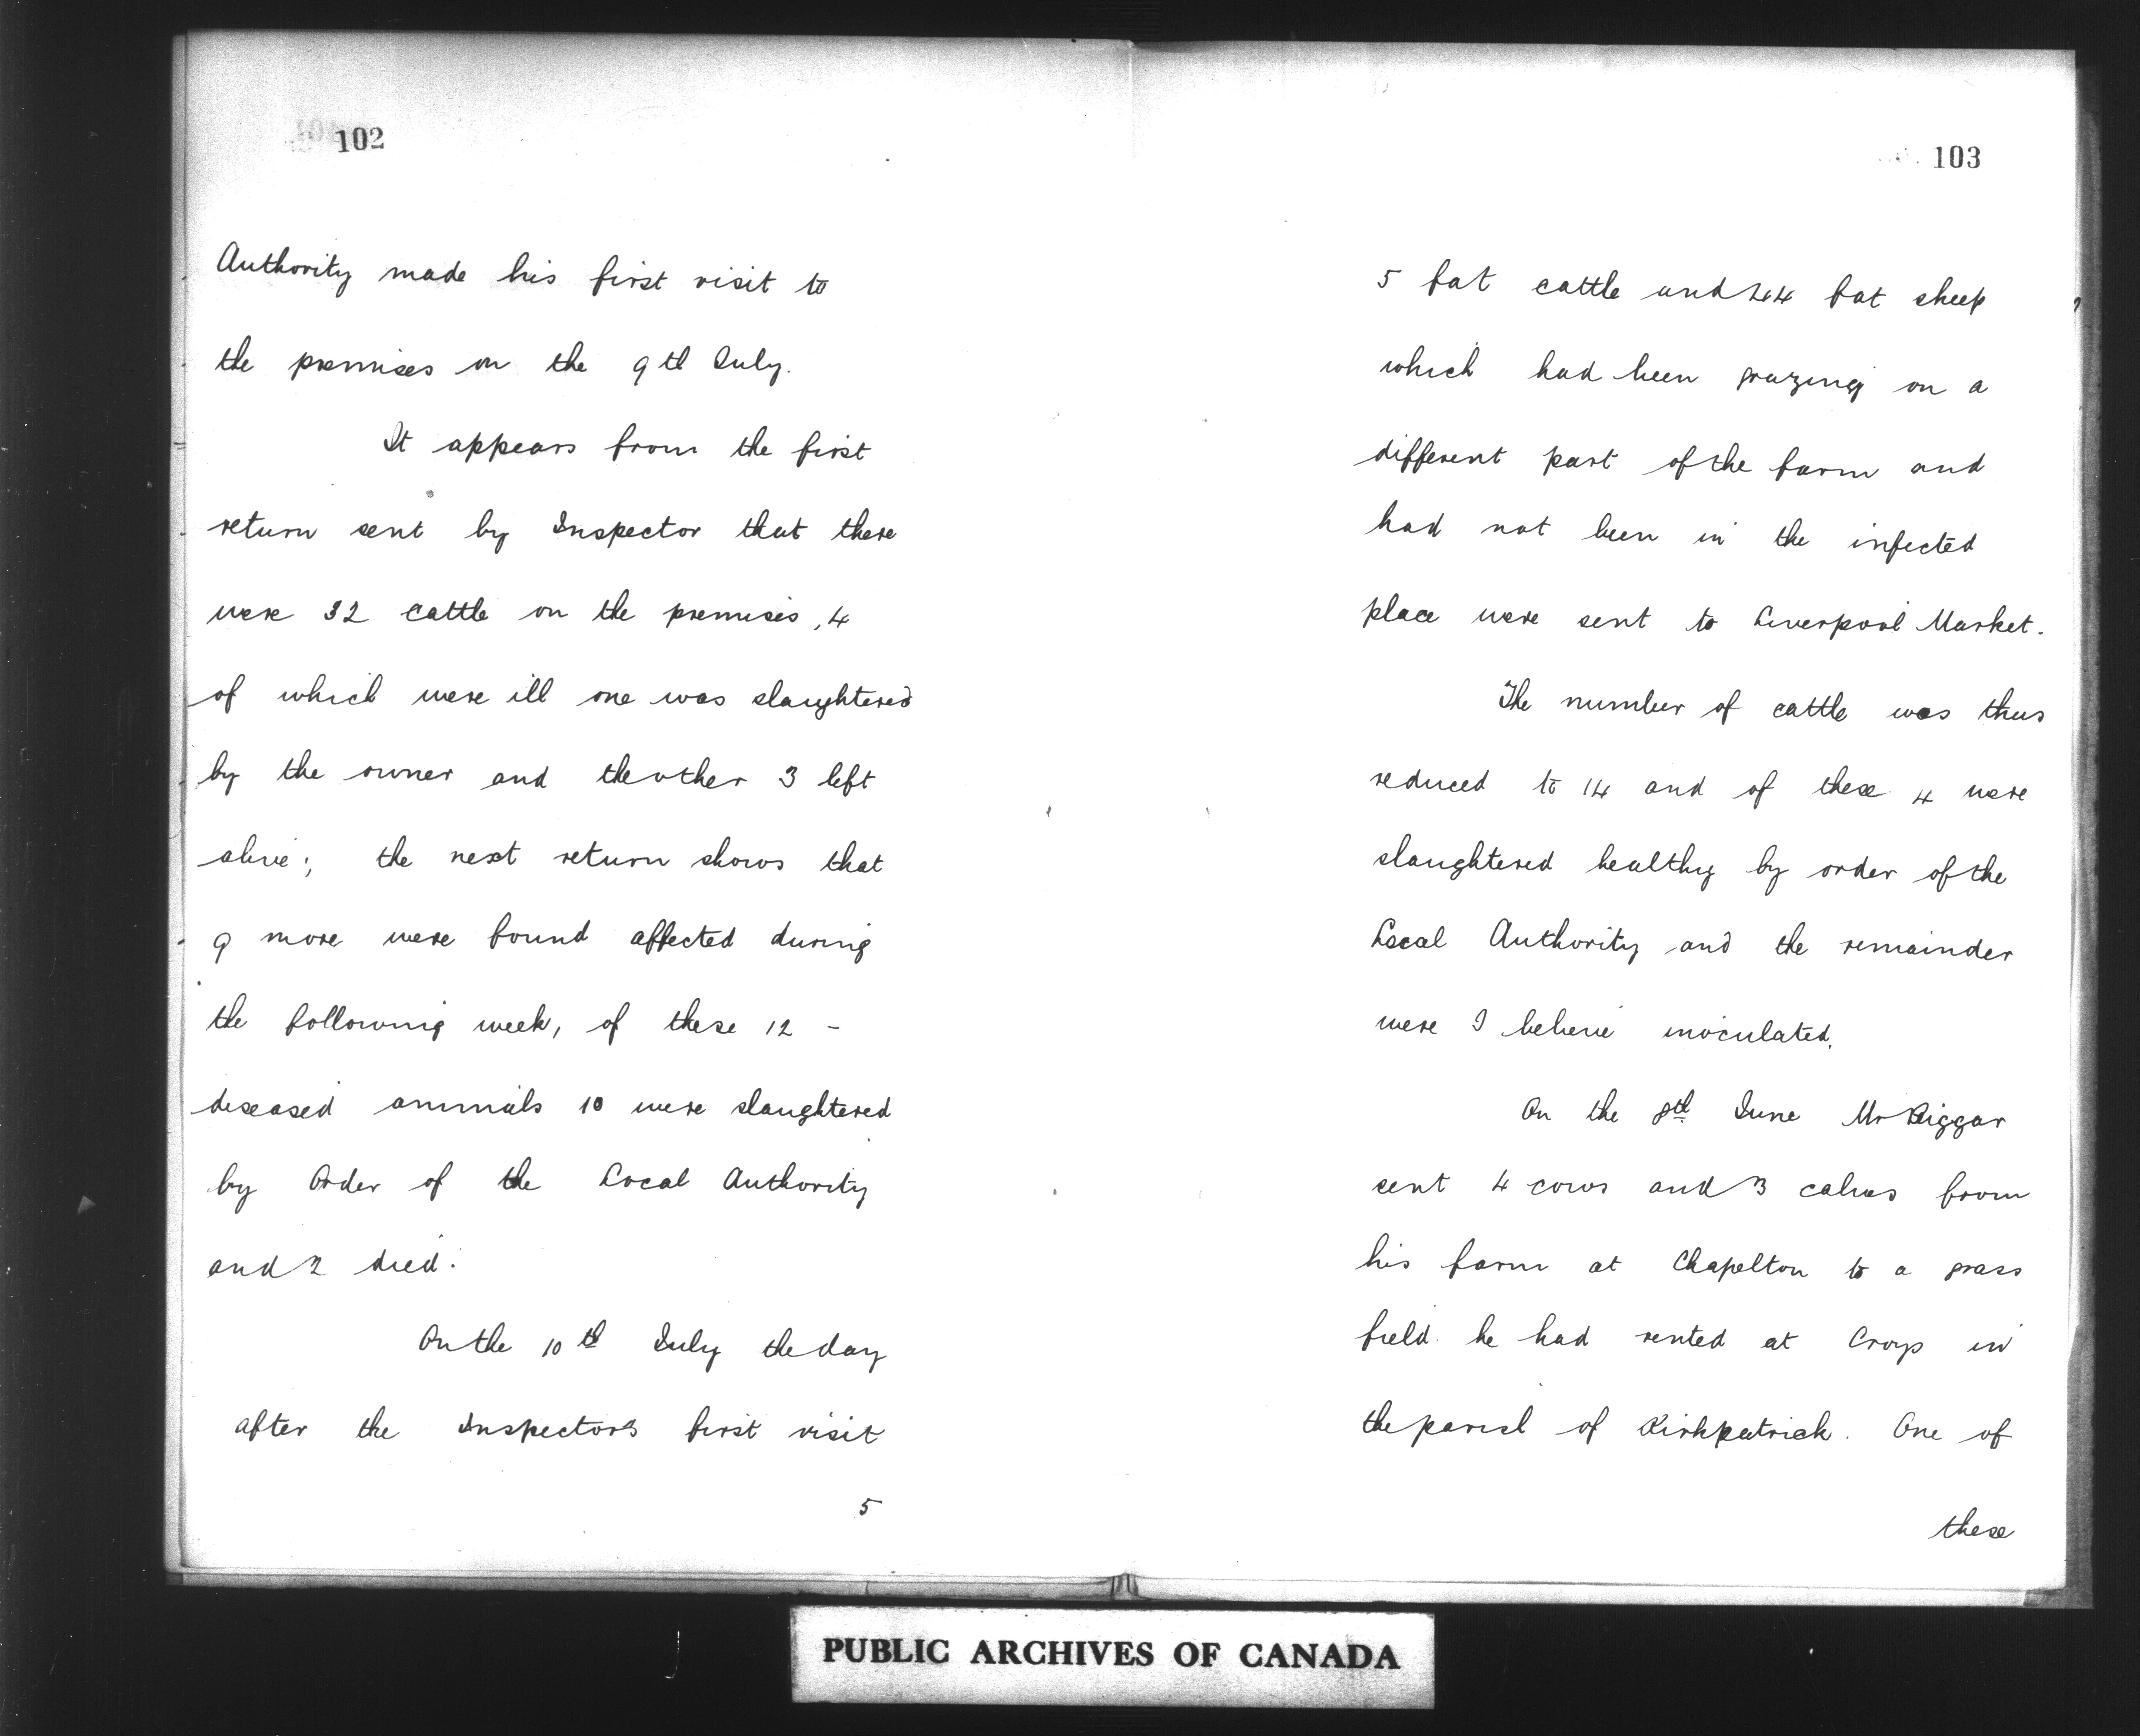 102
Authority made his first visit to
the premises on the 9th July.
It appears from the first
return sent by Inspector that there
were 32 cattle on the premises, 4
of which were ill one was slaughtered
by the owner and the other 3 left
alive; the next return shows that
9 more were found affected during
the following week, of these 12 -
diseased animals 10 were slaughtered
by Order of the Local Authority
and 2 died.
On the 10th July the day
after the Inspectors first visit
5
103
5 fat cattle and 44 fat sheep
which had been grazing on a
different part of the farm and
had not been in the infected
place were sent to Liverpool Market.
The number of cattle was thus
reduced to 14 and of these 4 were
slaughtered healthy by order of the
Local Authority and the remainder
were I believe inoculated.
On the 8th June Mr Biggar
sent 4 cows and 3 calves from
his farm at Chapelton to a grass
field he had rented at Croys in
the parish of Kirkpatrick. One of
these
PUBLIC ARCHIVES OF CANADA